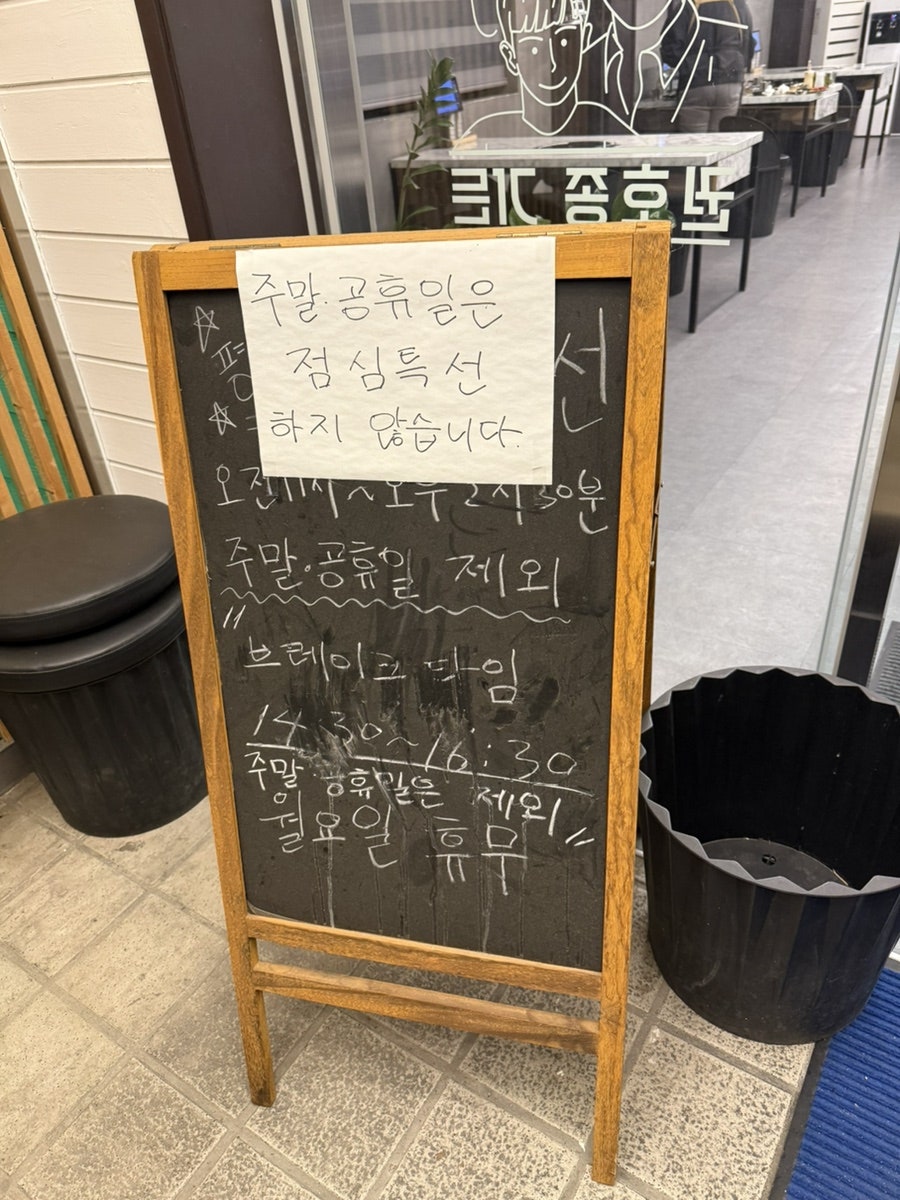 주말·공휴일은
점심특선
하지 않습니다.
선
오전11시~오후 2시30분
주말·공휴일 제외
"브레이크 타임
14:30~16:30
주말 공휴일은 제외
월요일 휴무"